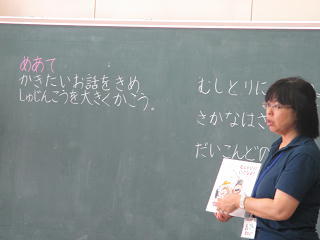 めあて
かきたいお話をきめ
しゅじんこうを大きくかこう。
むしとりに
さかなはさ
だいこんどの